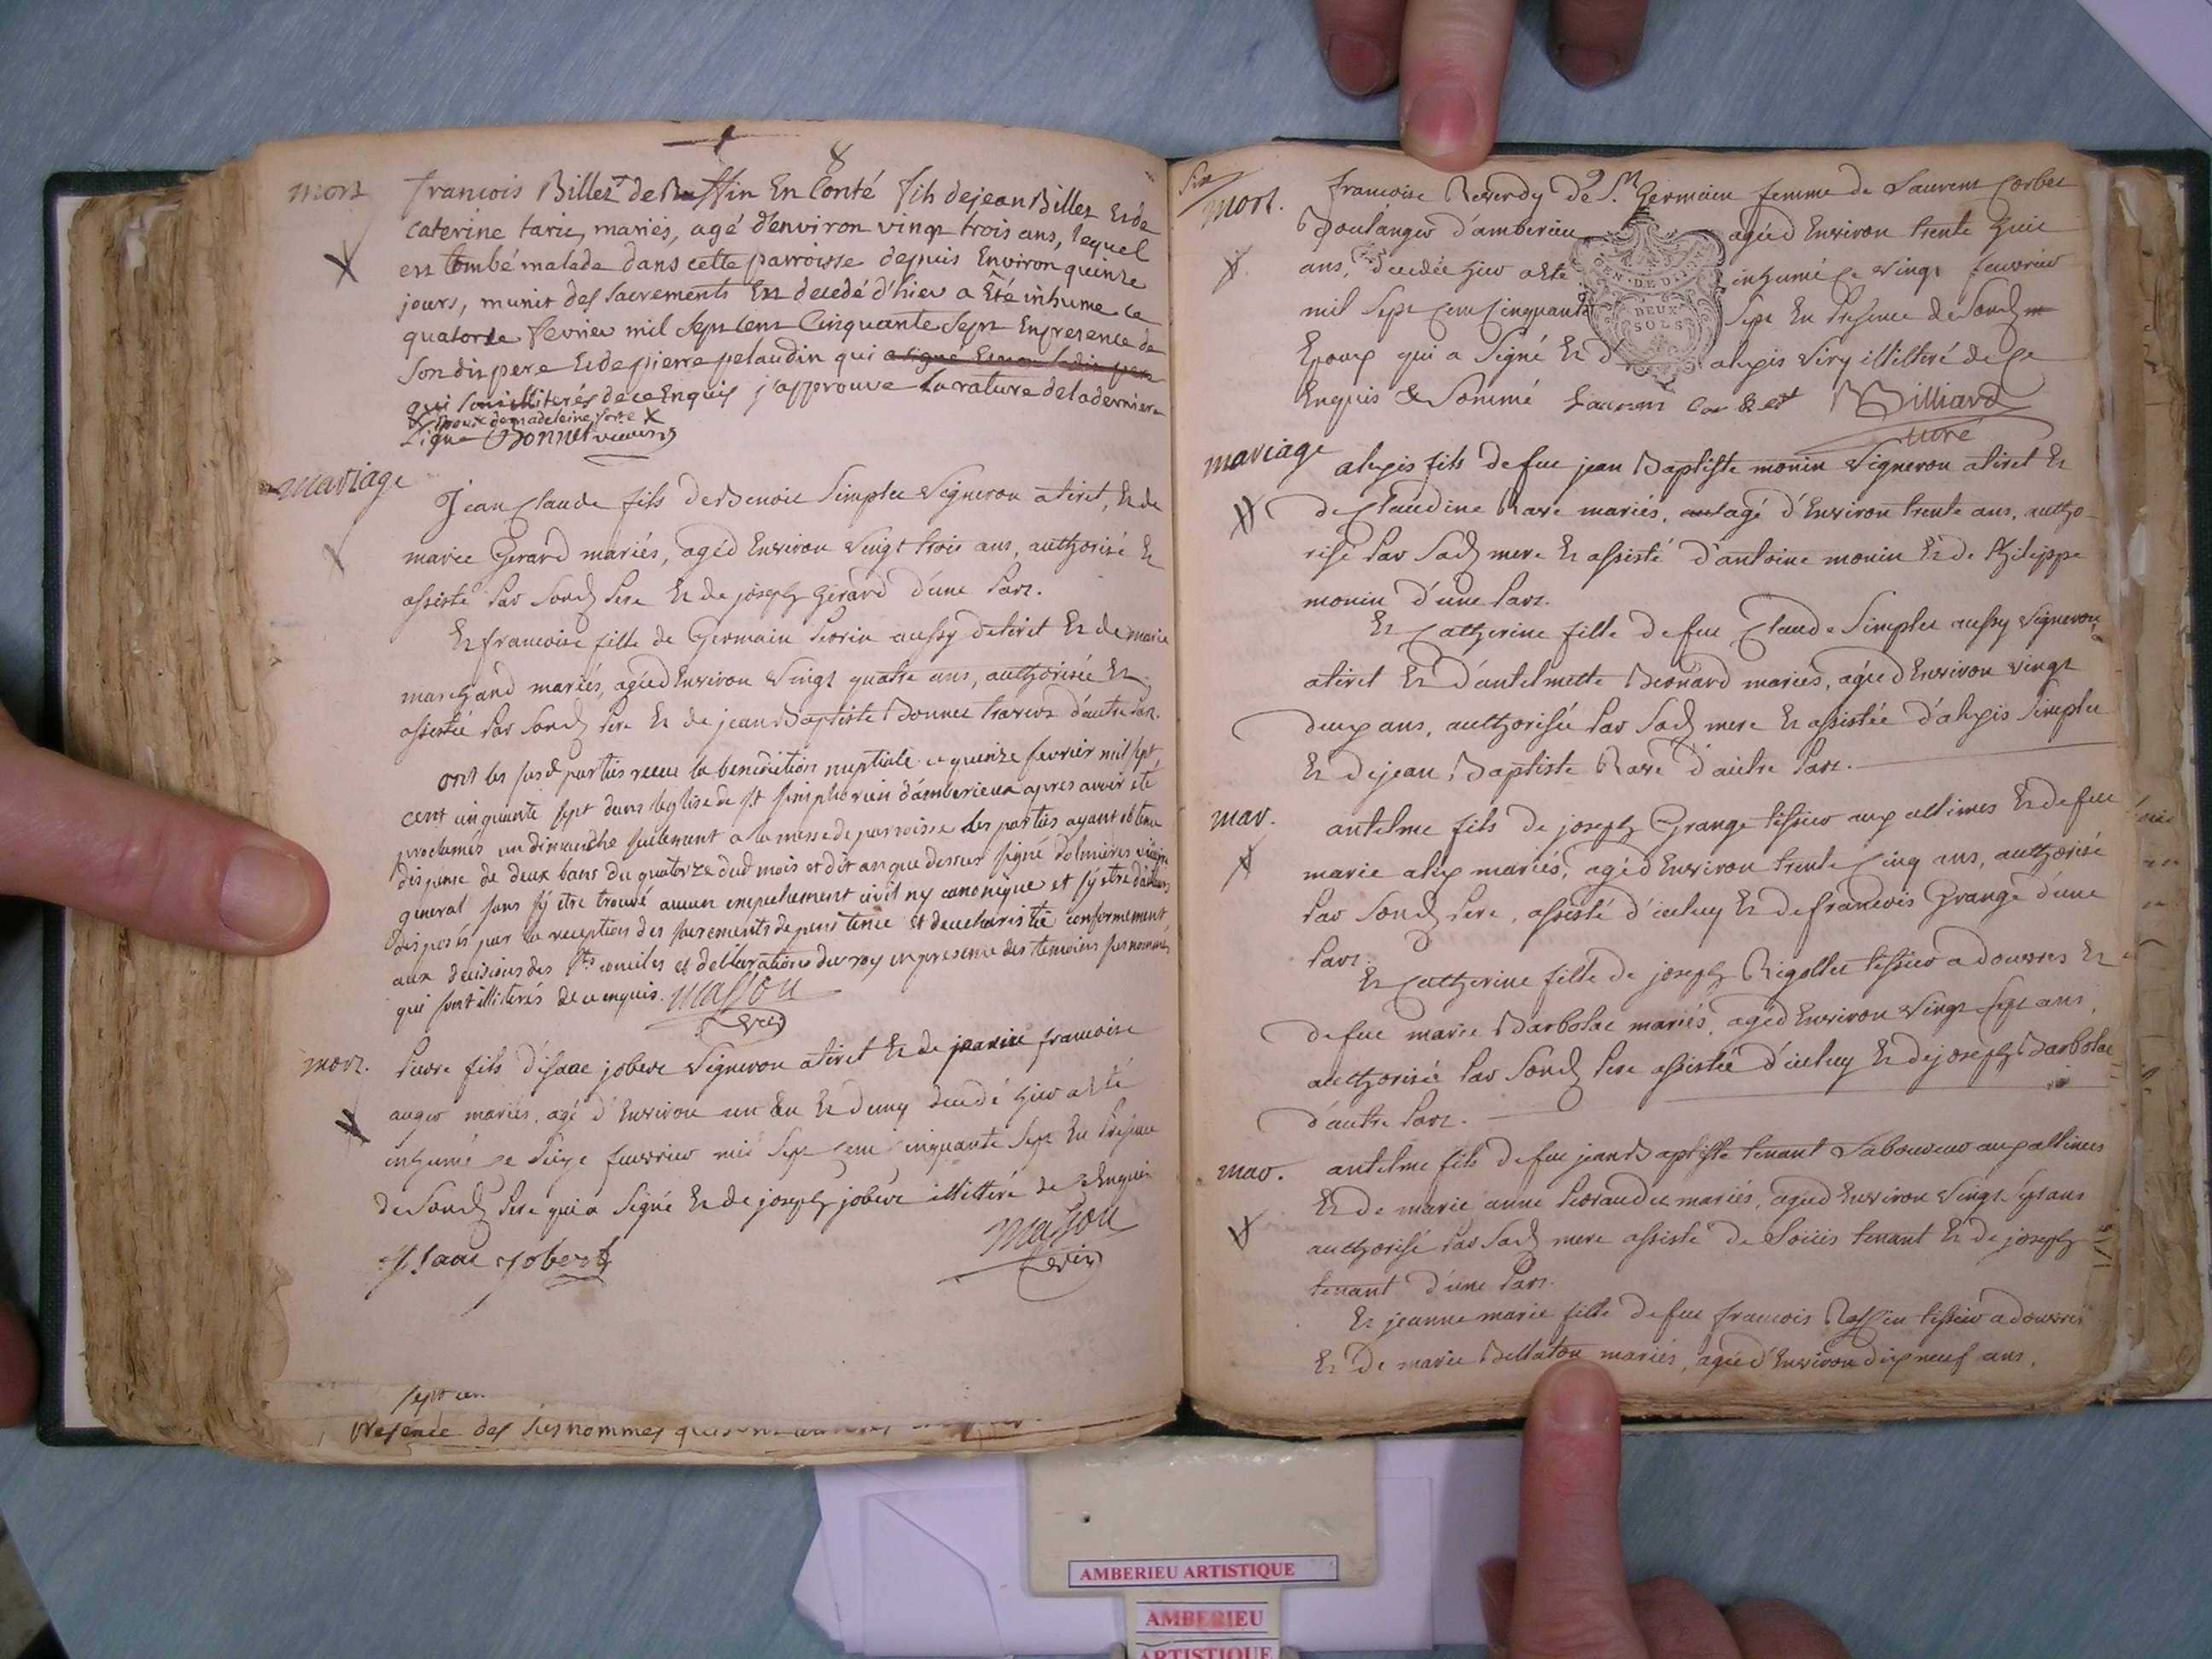 8
mort
francois Billet de Ruffin En Conté fils de jean Billet Et de
caterine tarie, mariés, agé d'environ vingt trois ans, lequel
est tombé malade dans cette parroisse depuis Environ quinze
jours, munit des sacrements Est decedé d'hier a Eté inhume ce
quatorze fevrier mil sept cent Cinquante sept En presence de
son dit pere Et de pierre pelaudin qui a signé Et non ledit pere
qui sont illiterés de ce Enquis j'approuve la rature de la derniere
X Epoux de madeleine X
Ligne Bonnet
mariage
Jean Claude fils de Benoit Simplex vigneron a tiret, Et de
marie Gerard mariés, agé d'Environ vingt trois ans, authorisé Et
assisté par sond. pere Et de joseph Gerard d'une part.
Et francoise fille de Germain aussy de tiret Et de marie
marchand mariés, agée d'Environ vingt quatre ans, authorisée Et
assistée par sond. pere Et de jean Baptiste Bonnet d'autre part.
ont les susd. parties receu la benediction nuptiale ce quinze fevrier mil sept
cent cinquante sept dans l'eglise de st simphorien d'amberieux apres avoir été
proclamés un dimanche seulement a la messe de parroisse les parties ayant obtenu
dispense de deux bans du quatorze dud mois et dit an que dessus signé dolmieres vicaire
general sans s'y etre trouvé aucun empechement civil ny canonique et s'y etre d'ailleurs
disposés par la reception des sacrements de penitence et d'eucharistie conformement
aux decisions des sts conciles et declarations du roy en presence des temoins susnommés
qui sont illiterés de ce enquis. Masson
vic.
mort.
pierre fils d'isaac jobert vigneron a tiret Et de francoise
auger mariés, agé d'Environ un an Et demy decedé hier a eté
inhumé ce seize fevrier mil sept cent cinquante sept En presence
de sond. pere qui a signé Et de joseph jobert illitteré de Enquis
Isaac jobert
Masson
vic.
sept cen
presence des susnommes qui sont
mort.
francoise Reverdy de St. Germain femme de Laurent Corbet
Boulanger d'amberieu agée d'Environ trente huit
ans, decedée hier a eté inhumé ce vingt fevrier
mil sept cent Cinquante sept En presence de sond.
Epoux qui a signé Et d'alexis Viry illitteré de ce
Enquis & sommé Laurent Corbet Billiard
curé
GEN. DE DIJON
DEUX
SOLS
mariage
alexis fils de feu jean Baptiste monin vigneron a tiret Et
de Claudine Rave mariés, agé d'Environ trente ans, autho-
risé par sad. mere Et assisté d'antoine monin Et de philippe
monin d'une part.
Et Catherine fille de feu Claude Simplex aussy vigneron
a tiret Et d'antelmette Bernard mariés, agée d'Environ vingt
deux ans, authorisée par sad. mere Et assistée d'alexis Simplex
Et de jean Baptiste Rave d'autre part.
mar.
antelme fils de joseph Grange tissier aux allimes Et de feu
marie alex mariés, agé d'Environ trente Cinq ans, authorisé
par sond. pere, assisté d'iceluy Et de francois Grange d'une
part.
Et Catherine fille de joseph Rigollet tissier a douvres Et
de feu marie Barbolat mariés, agée d'Environ vingt sept ans,
authorisée par sond. pere assistée d'iceluy Et de joseph Barbolat
d'autre part.
mar.
antelme fils de feu jean Baptiste tenant Laboureur aux allimes
Et de marie anne mariés, agé d'Environ vingt sept ans
authorisé par sad. mere assisté de Loüis tenant Et de joseph
tenant d'une part.
Et jeanne marie fille de feu francois tissier a douvres
Et de marie Bellaton mariés, agée d'Environ dix neuf ans,
AMBERIEU ARTISTIQUE
AMBERIEU
ARTISTIQUE